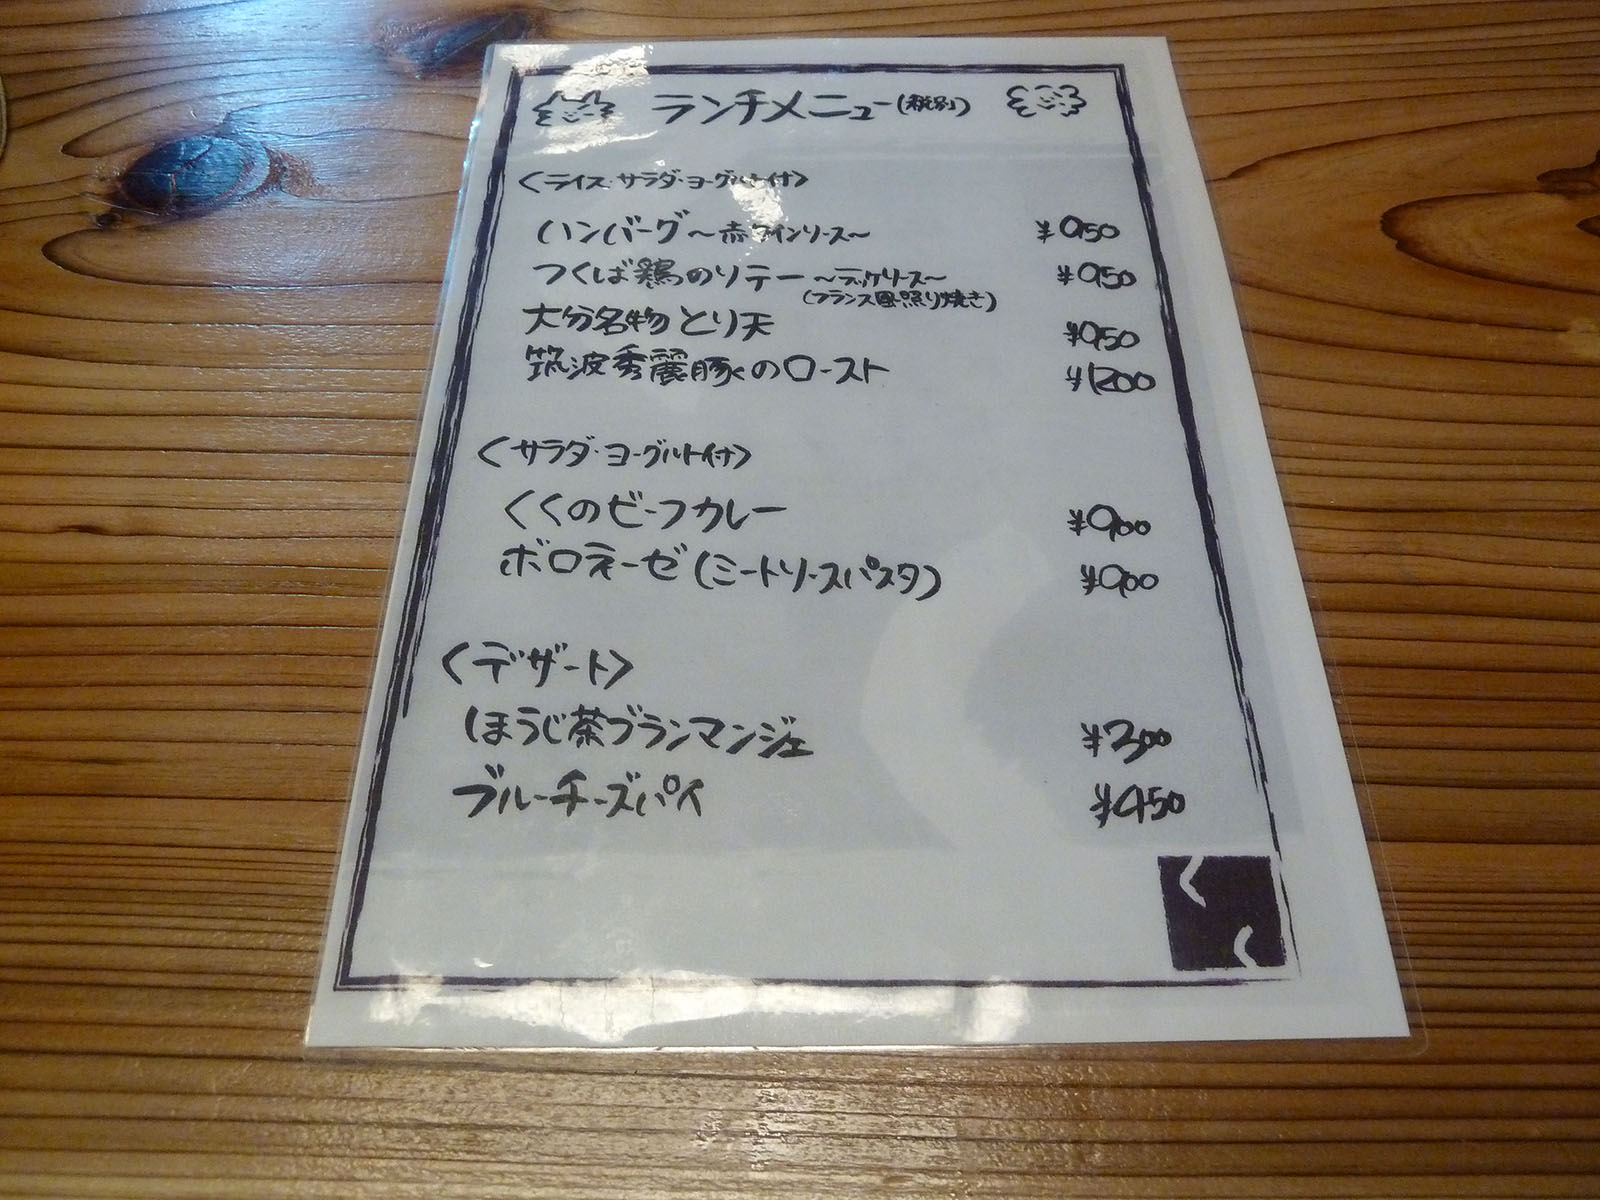 ランチメニュー(税別)
<ライス・サラダ・ヨーグルト付>
ハンバーグ〜赤ワインソース〜 ¥950
つくば鶏のソテー 〜ラッケソース〜 ¥950
(フランス風照り焼き)
大分名物とり天 ¥950
筑波秀麗豚のロースト ¥1200
<サラダ・ヨーグルト付>
くくのビーフカレー ¥900
ボロネーゼ(ミートソースパスタ) ¥900
<デザート>
ほうじ茶ブランマンジェ ¥300
ブルーチーズパイ ¥450
くく